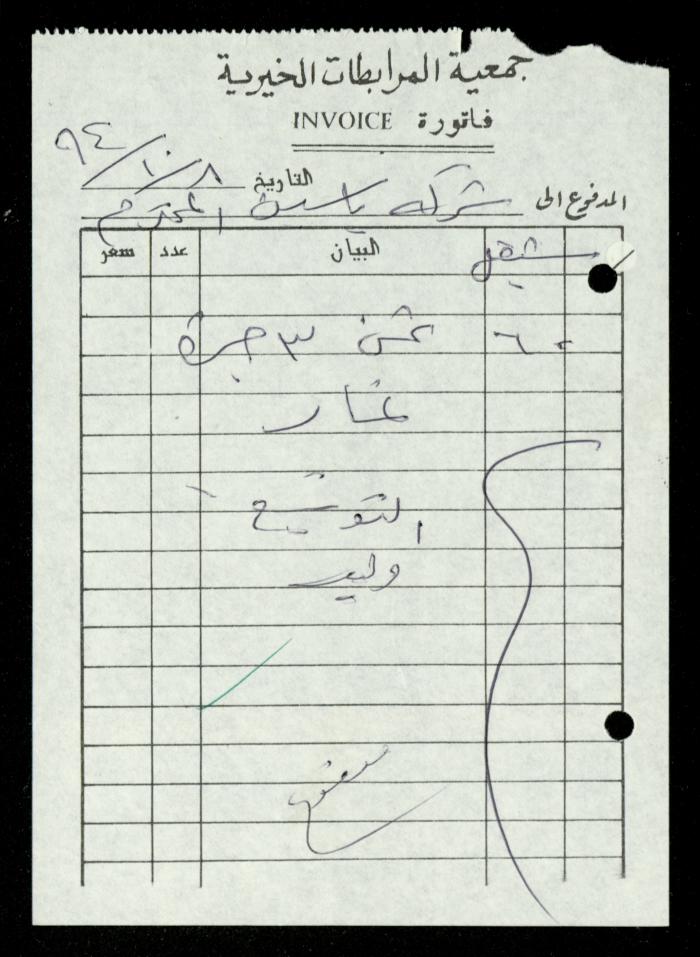 جمعية المرابطات الخيرية
فاتورة INVOICE
التاريخ ٨/١٠/٩٤
المدفوع الى شركة ياسين المحترم
شيقل البيان عدد سعر
٦٠ ثمن ٣ جرة
غاز
التوقيع
وليد
مدفوع